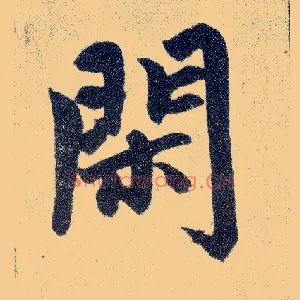 閑
Shufawang.CN